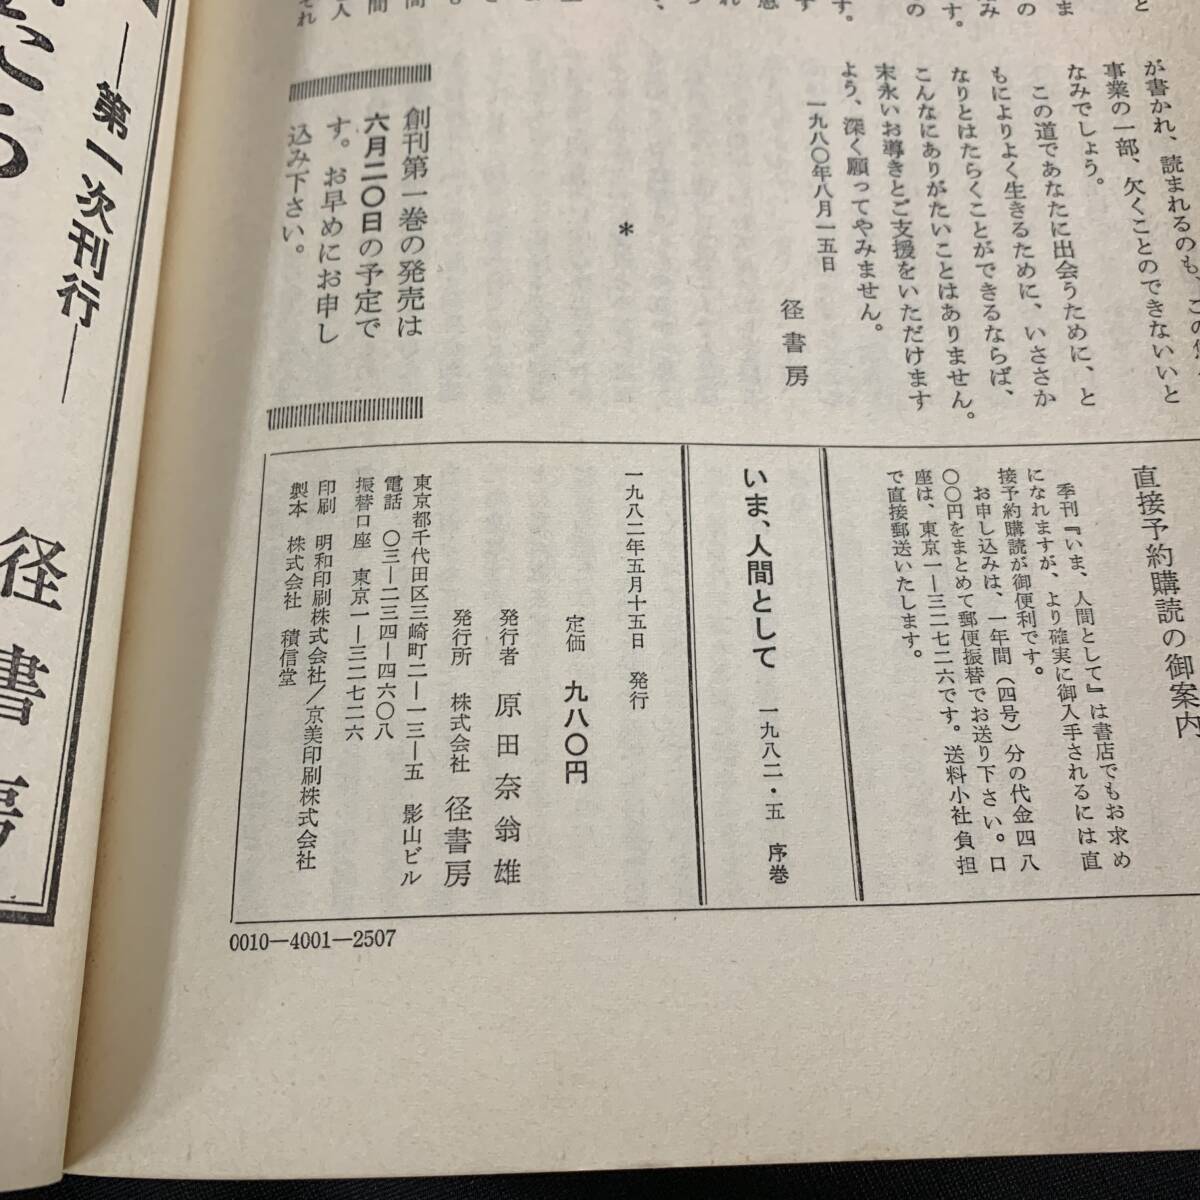 が書かれ、読まれるのも、この
事業の一部、欠くことのできないいと
なみでしょう。
この道であなたに出会うために、と
もによりよく生きるために、いささか
なりとはたらくことができるならば、
こんなにありがたいことはありません。
末永いお導きとご支援をいただけます
よう、深く願ってやみません。
一九八〇年八月一五日
径書房
*
創刊第一巻の発売は
六月二〇日の予定で
す。お早めにお申し
込み下さい。
直接予約購読の御案内
季刊『いま、人間として』は書店でもお求め
になれますが、より確実に御入手されるには直
接予約購読が御便利です。
お申し込みは、一年間（四号）分の代金四八
〇〇円をまとめて郵便振替でお送り下さい。口
座は、東京一―三二七二六です。送料小社負担
で直接郵送いたします。
いま、人間として 一九八二・五 序巻
一九八二年五月十五日 発行
定価 九八〇円
発行者 原田奈翁雄
発行所 株式会社 径書房
東京都千代田区三崎町二―一三―五 影山ビル
電話 〇三―二三四―四六〇八
振替口座 東京一―三二七二六
印刷 明和印刷株式会社／京美印刷株式会社
製本 株式会社 積信堂
0010―4001―2507
―第一次刊行―
径書房